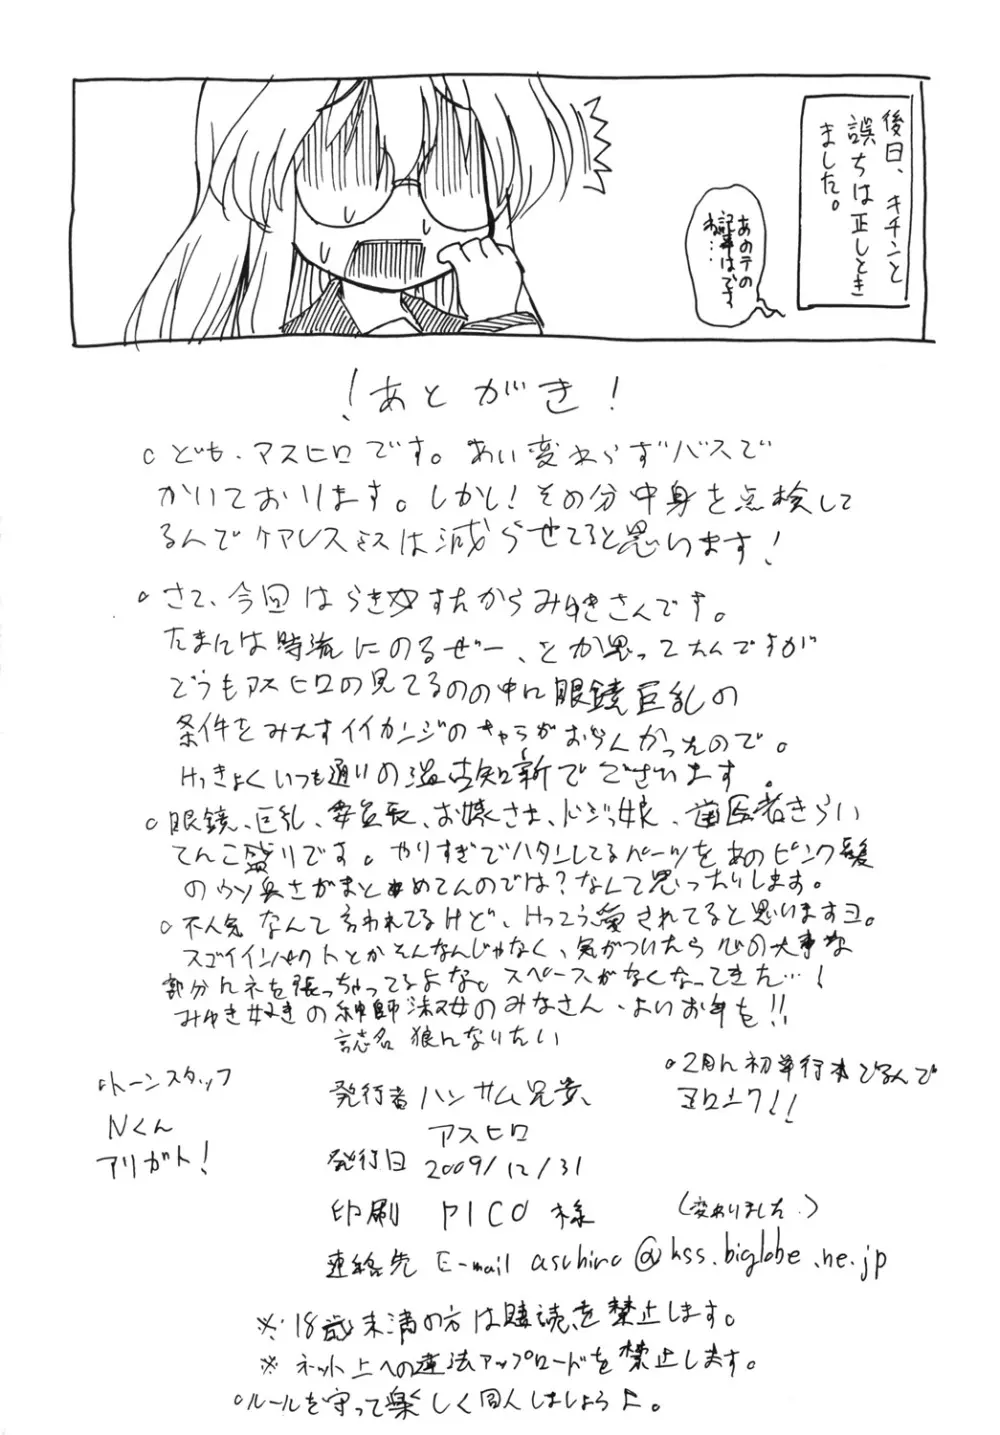 後日、キチンと
誤ちは正しとき
ました。
あのテの
記事はですね…
！あとがき！
○ども、アスヒロです。あい変わらずバスで
かいております。しかし！その分中身を点検して
るんでケアレスミスは減らせてると思います！
○さて、今回はらき☆すたからみゆきさんです。
たまには時流にのるぜー、とか思ってたんですが
どうもアスヒロの見てるのの中に眼鏡巨乳の
条件をみたすイイカンジのキャラがおらんかったので。
けっきょくいつも通りの温古知新でございます。
○眼鏡、巨乳、委員長、お嬢さま、ドジっ娘、歯医者きらい
てんこ盛りです。やりすぎでハタンしてるパーツをあのピンク髪
のウソ臭さがまとめてんのでは？なんて思ったりします。
○不人気なんて言われてるけど、けっこう愛されてると思いますヨ。
スゴイインパクトとかそんなんじゃなく、気がついたら心の大事な
部分にネを張っちゃってるよな。スペースがなくなってきた…！
みゆき好きの紳師淑女のみなさん、よいお年を!!
誌名 狼になりたい
○トーンスタッフ
Nくん
アリガト！
○2月に初単行本でるんで
ヨロシク!!
発行者 ハンサム兄貴、
アスヒロ
発行日 2009/12/31
印刷 PICO 様
（変わりました。）
連絡先 E-mail asuhiro@kss.biglobe.ne.jp
※18歳未満の方は購読を禁止します。
※ネット上への違法アップロードを禁止します。
○ルールを守って楽しく同人しましょうよ。